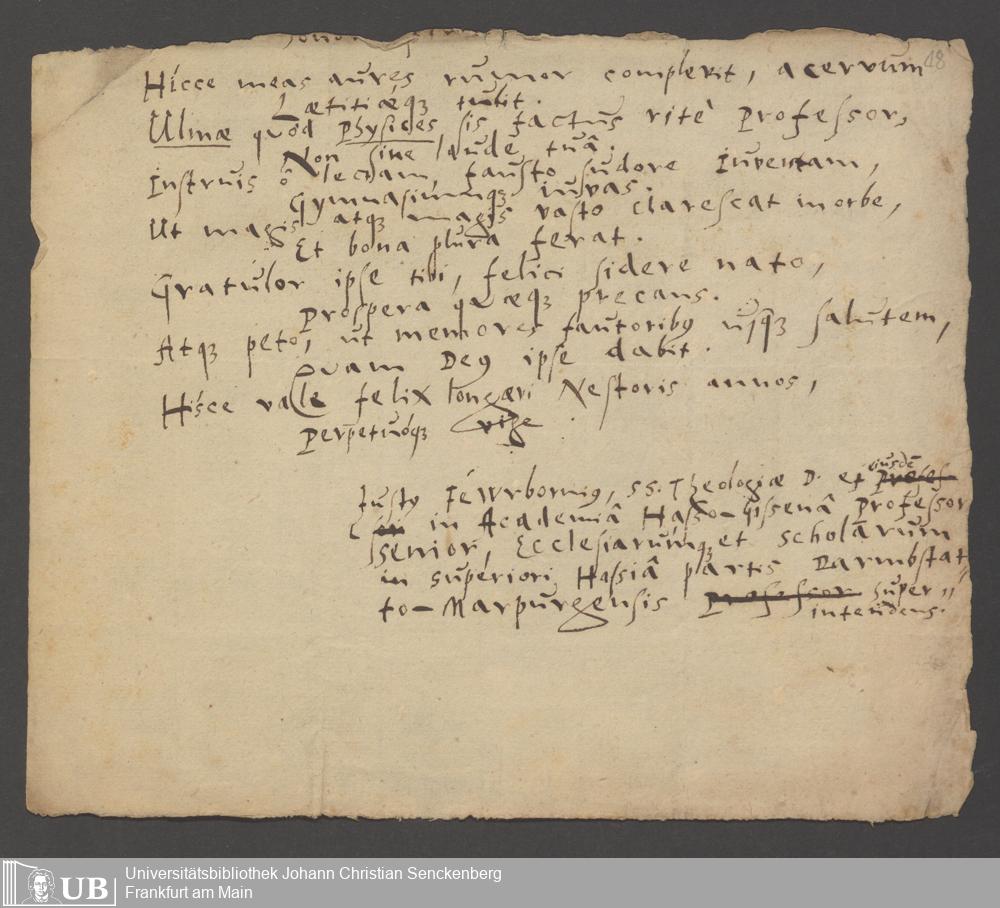 48
Hicce meas aures rumor complevit, acervum
Lætitiæq́ꝫ tulit.
Ulmæ quòd physices sis factus ritè Professor,
Non sine laude tuâ.
Instruis ô lectam, fausto sudore Iuventam,
Gymnasiumqꝫ iuvas.
Ut magis atqꝫ magis vasto clarescat in orbe,
Et bona plura ferat.
Gratulor ipse tibi, felici sidere nato,
Prospera quæqꝫ precans.
Atqꝫ peto, ut memores fautoribꝰ usqꝫ salutem,
Quam Deꝰ ipse dabit.
Hisce vale felix longævi Nestoris annos,
Perpetuóqꝫ vige
Justꝰ Féwrborniꝰ, SS. Theologiæ D. et eiusdē Profes-
sor in Academiâ Hasso-Gissenâ Professor
Senior, Ecclesiarúmqꝫ et scholarum
in superiori Hassiâ partis Darmbstat-
to-Marpurgensis Professor Super-
intendens.
Universitätsbibliothek Johann Christian Senckenberg
UB Frankfurt am Main